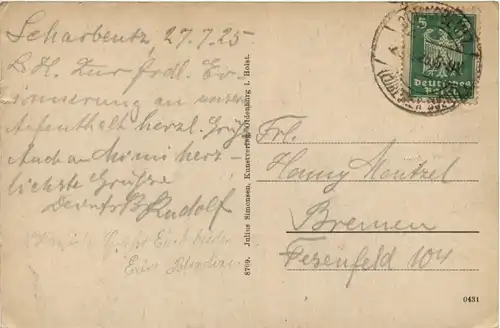 Scharbeutz, 27.7.25
L. H. Zur frdl. Er-
innerung an unsern
Aufenthalt herzl. Grüße
Auch an Mimi herz-
lichste Grüße
Rudolf
Frl.
Hanny Mentzel
Bremen
Fesenfeld 104
8709. Julius Simonsen, Kunstverlag, Oldenburg i. Holst.
0431
5
Deutsches